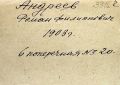 Андреев
Роман Филиппович
1903 г.
6 поперечная № 20.